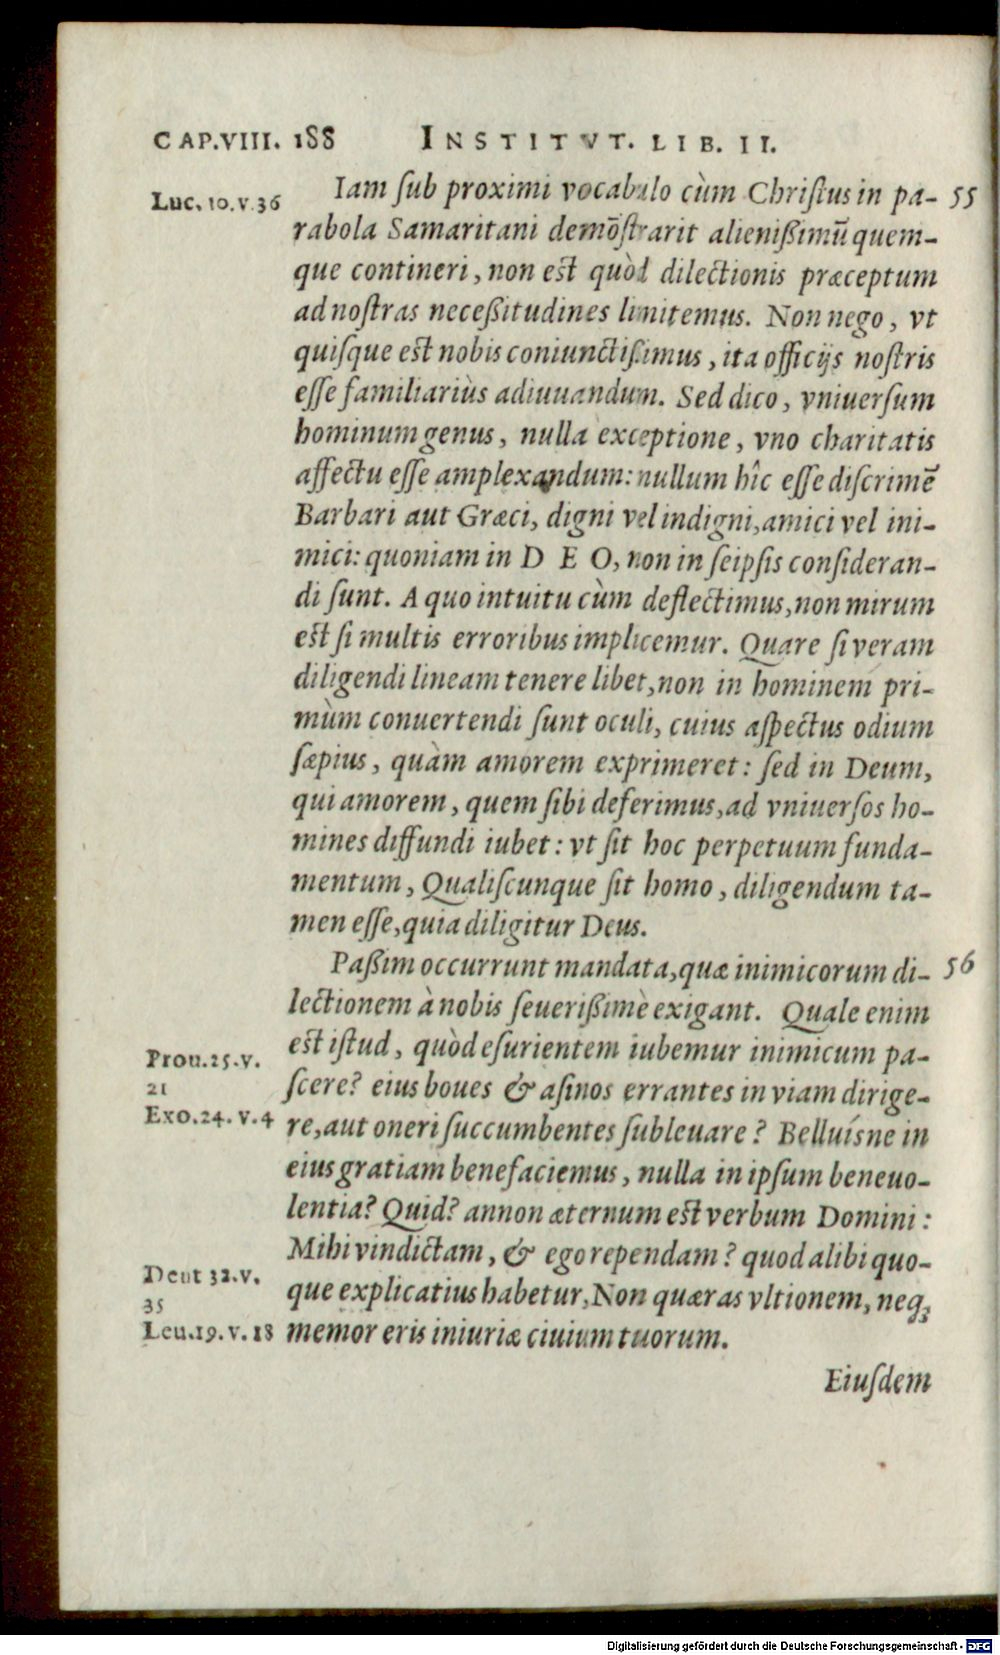 CAP.VIII. 188 INSTITVT. LIB. II.
Luc. 10.v.36
Iam ſub proximi vocabulo cùm Chriſtus in pa- 55
rabola Samaritani demõſtrarit alienißimũ quem-
que contineri, non eſt quòd dilectionis præceptum
ad noſtras neceßitudines limitemus. Non nego, vt
quiſque eſt nobis coniunctißimus, ita officijs noſtris
eſſe familiariùs adiuuandum. Sed dico, vniuerſum
hominum genus, nulla exceptione, vno charitatis
affectu eſſe amplexandum: nullum hîc eſſe diſcrimẽ
Barbari aut Græci, digni vel indigni, amici vel ini-
mici: quoniam in D E O, non in ſeipſis conſideran-
di ſunt. A quo intuitu cùm deflectimus, non mirum
eſt ſi multis erroribus implicemur. Quare ſi veram
diligendi lineam tenere libet, non in hominem pri-
mùm conuertendi ſunt oculi, cuius aſpectus odium
ſæpius, quàm amorem exprimeret: ſed in Deum,
qui amorem, quem ſibi deferimus, ad vniuerſos ho-
mines diffundi iubet: vt ſit hoc perpetuum funda-
mentum, Qualiſcunque ſit homo, diligendum ta-
men eſſe, quia diligitur Deus.
Paßim occurrunt mandata, quæ inimicorum di- 56
lectionem à nobis ſeuerißimè exigant. Quale enim
eſt iſtud, quòd eſurientem iubemur inimicum pa-
Prou.25.v.
21
ſcere? eius boues & aſinos errantes in viam dirige-
Exo.24.v.4
re, aut oneri ſuccumbentes ſubleuare? Belluíſne in
eius gratiam benefaciemus, nulla in ipſum beneuo-
lentia? Quid? annon æternum eſt verbum Domini:
Mihi vindictam, & ego rependam? quod alibi quo-
Deut 32.v.
35
que explicatius habetur, Non quæras vltionem, neq;
Leu.19.v.18
memor eris iniuriæ ciuium tuorum.
Eiuſdem
Digitalisierung gefördert durch die Deutsche Forschungsgemeinschaft - DFG